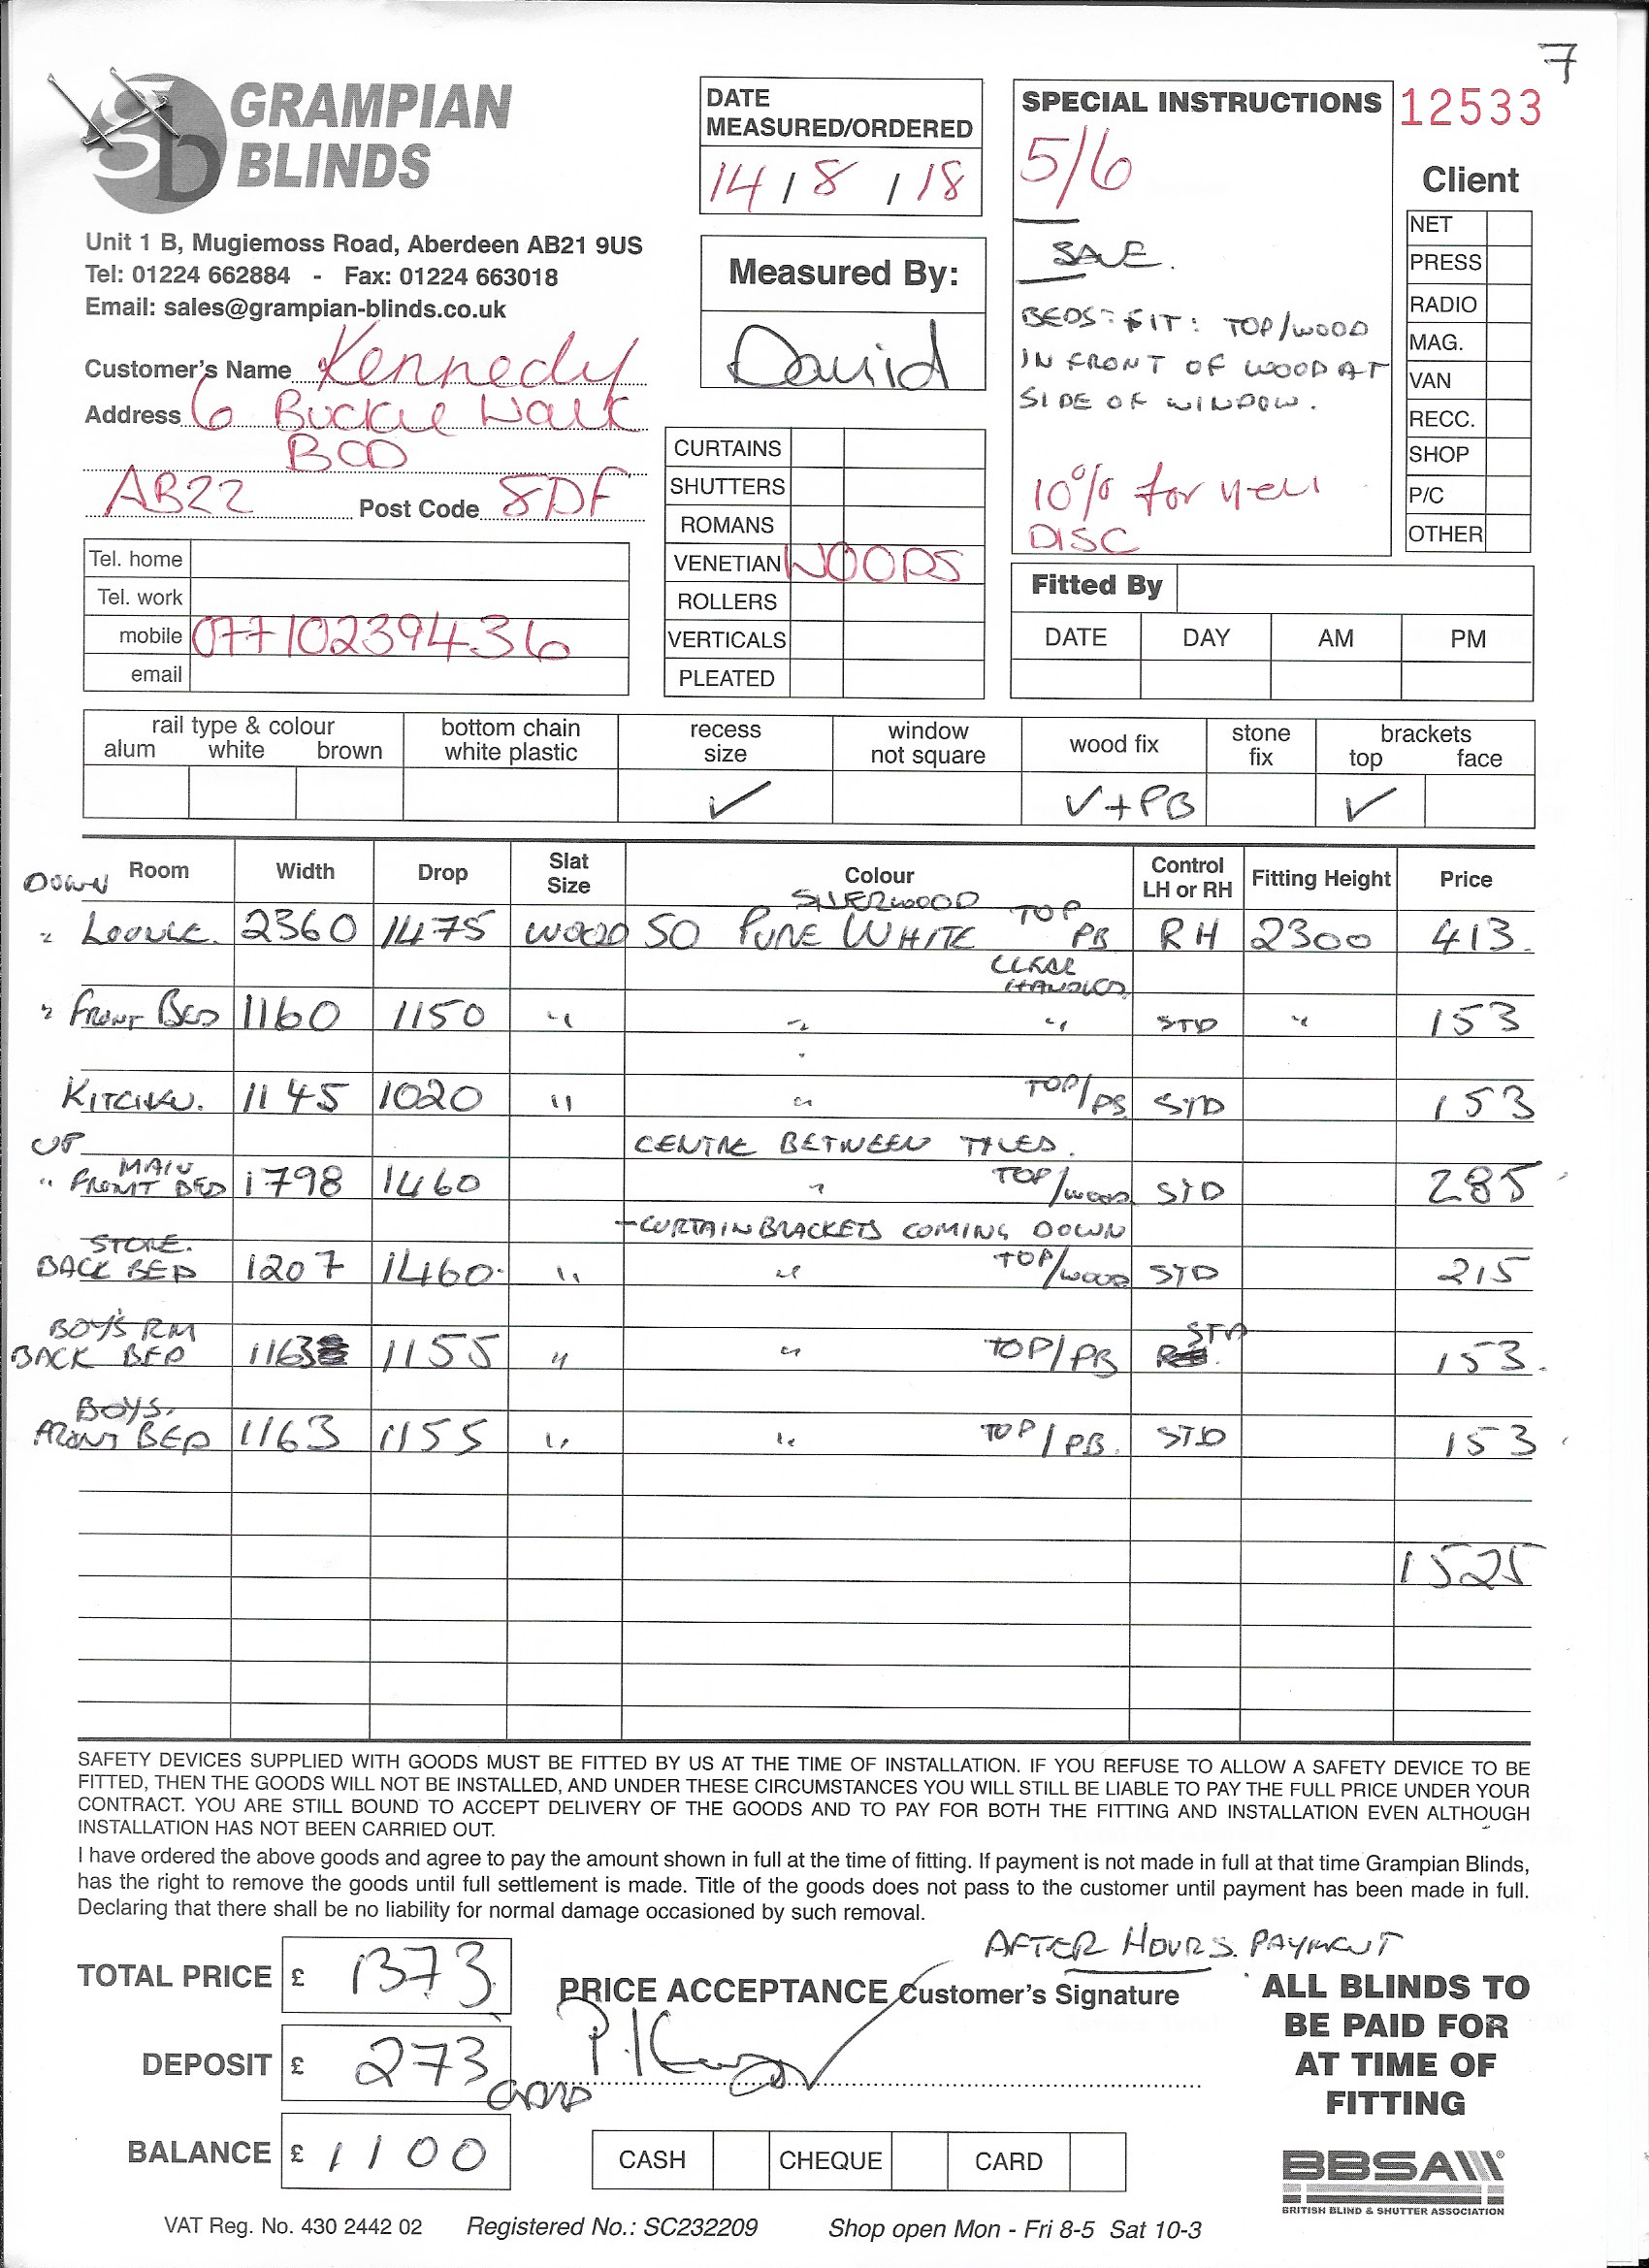 7
GRAMPIAN
BLINDS
Unit 1 B, Mugiemoss Road, Aberdeen AB21 9US
Tel: 01224 662884 - Fax: 01224 663018
Email: sales@grampian-blinds.co.uk
Customer's Name Kennedy
Address 6 Buckie Walk
BOD
AB22 Post Code 8DF
Tel. home
Tel. work
mobile 07710239436
email
DATE
MEASURED/ORDERED
14/8/18
Measured By:
David
CURTAINS
SHUTTERS
ROMANS
VENETIAN WOODS
ROLLERS
VERTICALS
PLEATED
SPECIAL INSTRUCTIONS
5/6
SALE.
BEDS: FIT: TOP/WOOD
IN FRONT OF WOOD AT
SIDE OF WINDOW.
10% for yell
DISC
12533
Client
NET
PRESS
RADIO
MAG.
VAN
RECC.
SHOP
P/C
OTHER
Fitted By
DATE DAY AM PM
rail type & colour
alum white brown
bottom chain
white plastic
recess
size
window
not square
wood fix
stone
fix
brackets
top face
✓ ✓+PB ✓
Room Width Drop Slat Size Colour Control LH or RH Fitting Height Price
DOWN SILVERWOOD
" LOUNGE. 2360 1475 WOOD 50 PURE WHITE TOP PB RH 2300 413.
CLEAR
HANDLES
" FRONT BED 1160 1150 " " " STD " 153
KITCHEN. 1145 1020 " " TOP/PB STD 153
UP CENTRE BETWEEN TILES.
" MAIN FRONT BED 1798 1460 " TOP/WOOD STD 285
-CURTAIN BRACKETS COMING DOWN
STORE.
BACK BED 1207 1460 " " TOP/WOOD STD 215
BOY'S RM
BACK BED 1163 1155 " " TOP/PB STD 153.
BOYS.
FRONT BED 1163 1155 " " TOP/PB. STD 153
1525
SAFETY DEVICES SUPPLIED WITH GOODS MUST BE FITTED BY US AT THE TIME OF INSTALLATION. IF YOU REFUSE TO ALLOW A SAFETY DEVICE TO BE
FITTED, THEN THE GOODS WILL NOT BE INSTALLED, AND UNDER THESE CIRCUMSTANCES YOU WILL STILL BE LIABLE TO PAY THE FULL PRICE UNDER YOUR
CONTRACT. YOU ARE STILL BOUND TO ACCEPT DELIVERY OF THE GOODS AND TO PAY FOR BOTH THE FITTING AND INSTALLATION EVEN ALTHOUGH
INSTALLATION HAS NOT BEEN CARRIED OUT.
I have ordered the above goods and agree to pay the amount shown in full at the time of fitting. If payment is not made in full at that time Grampian Blinds,
has the right to remove the goods until full settlement is made. Title of the goods does not pass to the customer until payment has been made in full.
Declaring that there shall be no liability for normal damage occasioned by such removal.
AFTER HOURS. PAYMENT
TOTAL PRICE £ 1373
PRICE ACCEPTANCE Customer's Signature
DEPOSIT £ 273 CARD
BALANCE £ 1100
CASH CHEQUE CARD
ALL BLINDS TO
BE PAID FOR
AT TIME OF
FITTING
BBSA
BRITISH BLIND & SHUTTER ASSOCIATION
VAT Reg. No. 430 2442 02 Registered No.: SC232209 Shop open Mon - Fri 8-5 Sat 10-3